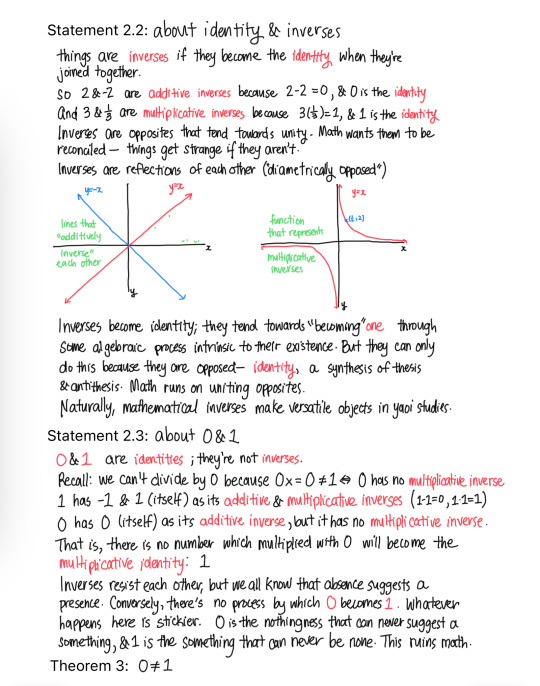 Statement 2.2: about identity & inverses
things are inverses if they become the identity when they're
joined together.
So 2 & -2 are additive inverses because 2-2=0, & 0 is the identity
And 3 & 1/3 are multiplicative inverses because 3(1/3)=1, & 1 is the identity
Inverses are opposites that tend towards unity. Math wants them to be
reconciled— things get strange if they aren't.
Inverses are reflections of each other ("diametrically opposed")
y=-x
y=x
lines that
"additively
inverse"
each other
x
y
function
that represents
multiplicative
inverses
y=x
(½,2)
x
y
Inverses become identity; they tend towards "becoming" one through
some algebraic process intrinsic to their existence. But they can only
do this because they are opposed— identity, a synthesis of thesis
& antithesis. Math runs on uniting opposites.
Naturally, mathematical inverses make versatile objects in yaoi studies.
Statement 2.3: about 0 & 1
0 & 1 are identities; they're not inverses.
Recall: we can't divide by 0 because 0x=0≠1 ⇔ 0 has no multiplicative inverse
1 has -1 & 1 (itself) as its additive & multiplicative inverses (1-1=0, 1·1=1)
0 has 0 (itself) as its additive inverse, but it has no multiplicative inverse.
That is, there is no number which multiplied with 0 will become the
multiplicative identity: 1
Inverses resist each other, but we all know that absence suggests a
presence. Conversely, there's no process by which 0 becomes 1. Whatever
happens here is stickier. 0 is the nothingness that can never suggest a
something, & 1 is the something that can never be none. This ruins math.
Theorem 3: 0≠1